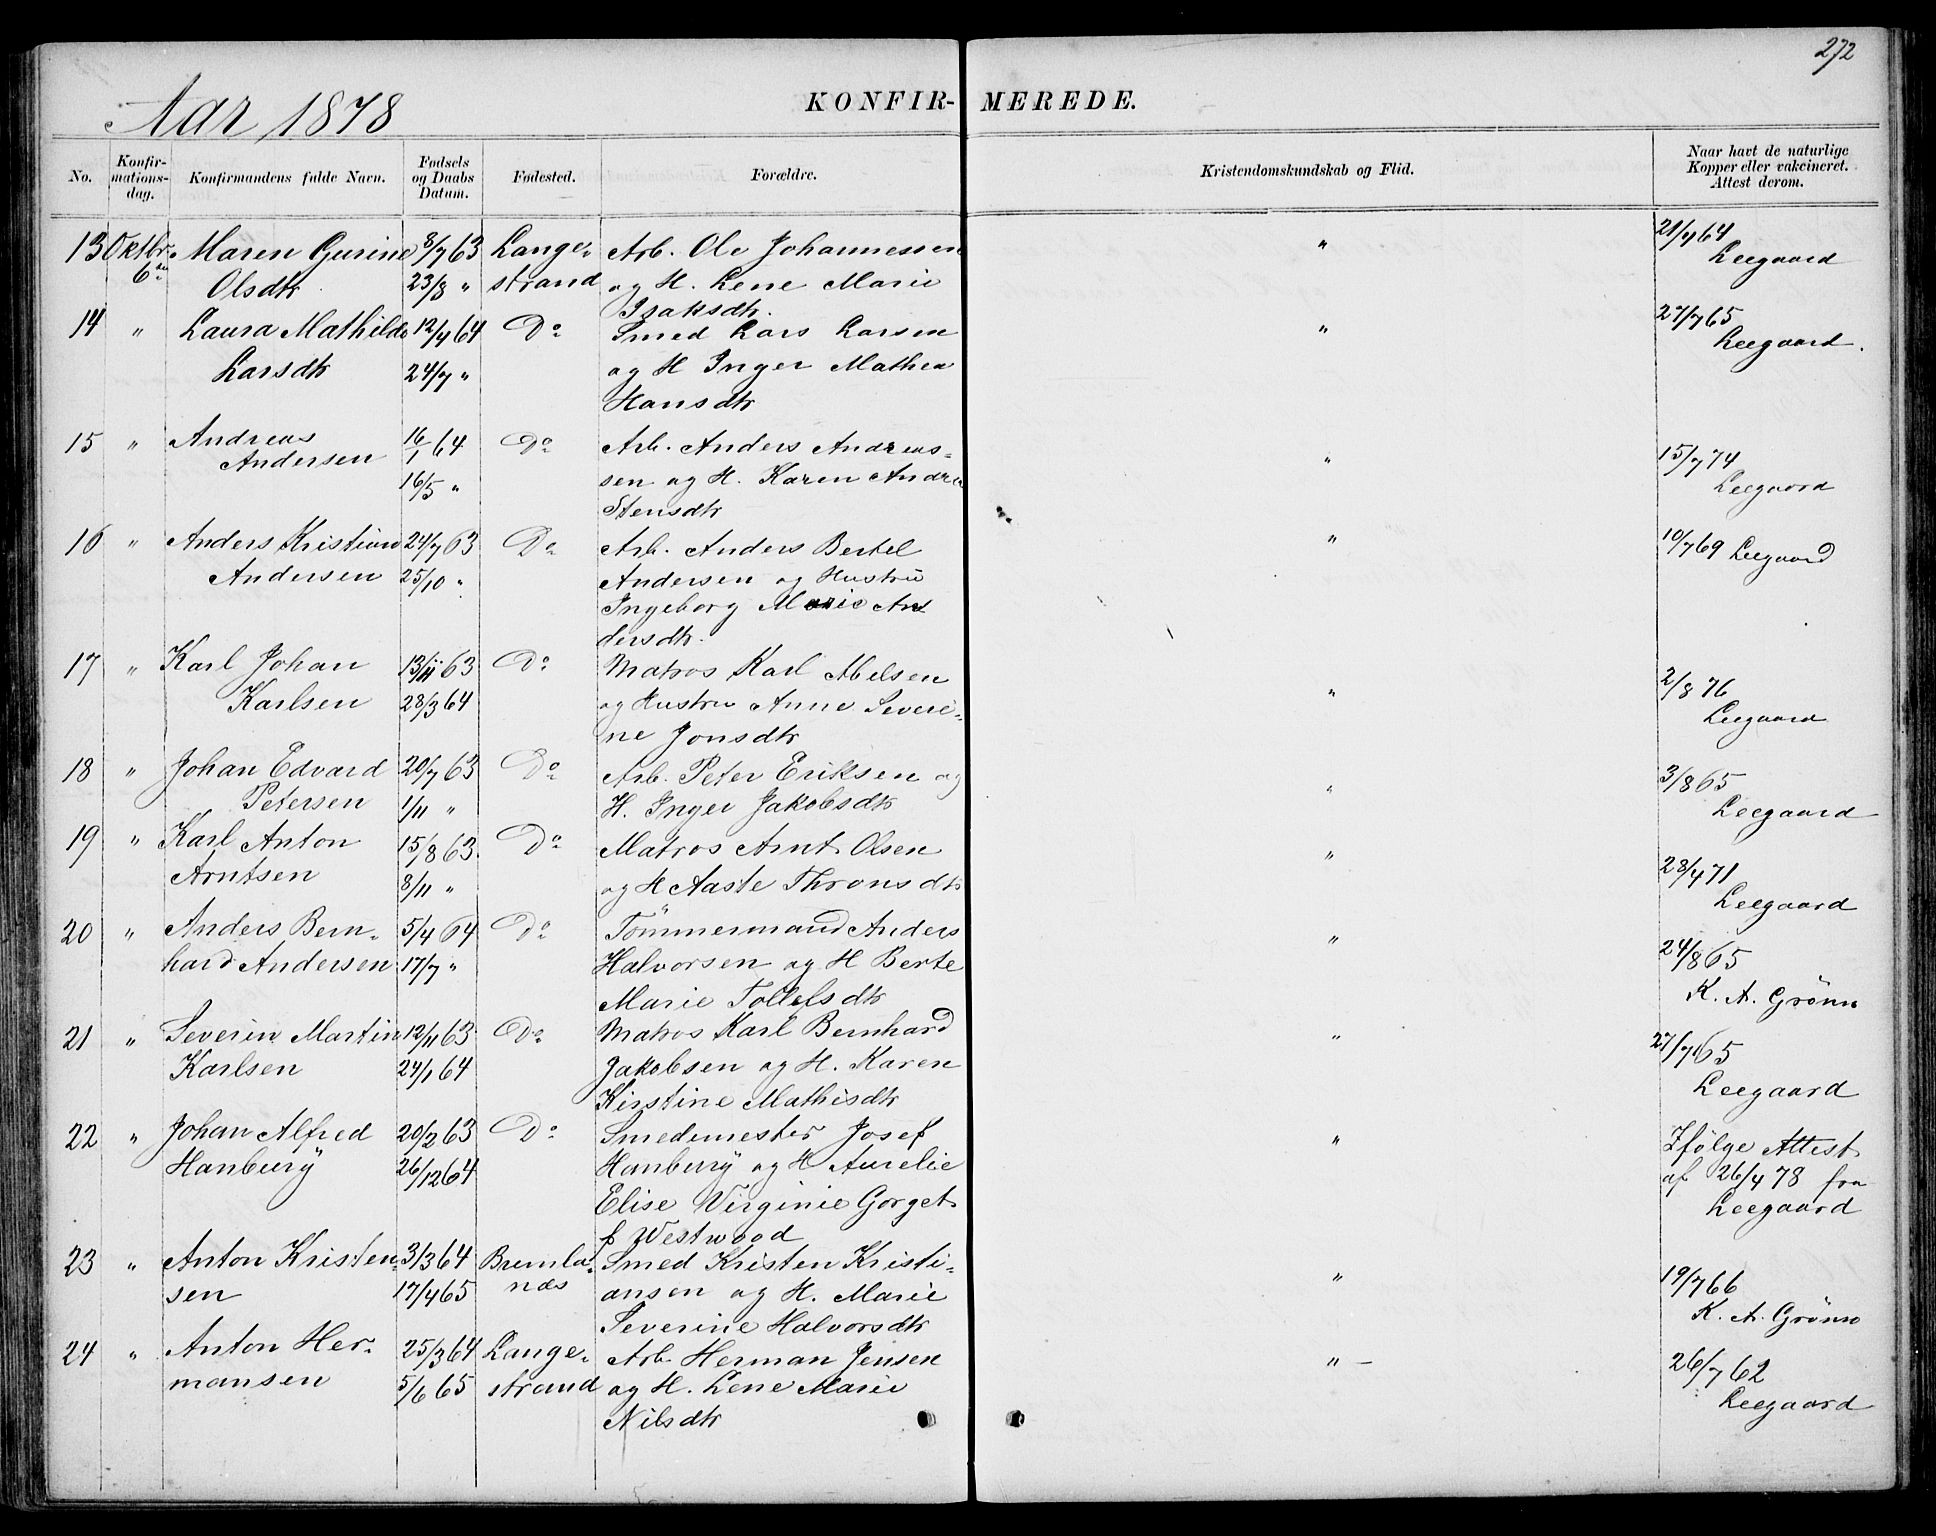 272
Aar 1878
KONFIR- MEREDE.
No. Konfirmationsdag. Konfirmandens fulde Navn. Fødsels og Daabs Datum. Fødested. Forældre. Kristendomskundskab og Flid. Naar havt de naturlige Kopper eller vakcineret. Attest derom.
13 Oktbr. Maren Gurine 8/7 63 Lange- Arb. Ole Johannessen " 21/7 64
6te Olsdtr 23/8 " strand og H. Lene Marie Leegaard
Isaksdtr.
14 " Laura Mathilde 12/4 64 Do Smed Lars Larsen " 27/7 65
Larsdtr 24/7 " og H Inger Mathea Leegaard.
Hansdtr
15 " Andreas 16/1 64 Do Arb. Anders Andreas- " 15/7 74
Andersen 16/5 " sen og H. Karen Andrea Leegaard
Stensdtr
16 " Anders Kristian 24/7 63 Do Arb. Anders Bertel " 10/7 69 Leegaard
Andersen 25/10 " Andersen og Hustru
Ingeborg Marie An
dersdtr.
17 " Karl Johan 13/11 63 Do Matros Karl Abelsen " 2/8 76
Karlsen 28/3 64 og Hustru Anne Severi- Leegaard
ne Jonsdtr
18 " Johan Edvard 20/7 63 Do Arb. Peter Eriksen og " 3/8 65
Petersen 1/11 " H. Inger Jakobsdtr Leegaard
19 " Karl Anton 15/8 63 Do Matros Arnt Olsen " 28/4 71
Arntsen 8/11 " og H Aaste Thronsdtr Leegaard
20 " Anders Bern- 5/4 64 Do Tömmermand Anders " 24/8 65
hard Andersen 17/7 " Halvorsen og H Berte K. A. Grönn
Marie Tollefsdtr
21 " Severin Martin 12/11 63 Do Matros Karl Bernhard " 27/7 65
Karlsen 24/1 64 Jakobsen og H. Karen Leegaard
Kirstine Mathisdtr
22 " Johan Alfred 20/2 63 Do Smedemester Josef " Ifölge Attest
Hanbury 26/12 64 Hanbury og H Aurelie af 26/4 78 fra
Elise Virginie Gorget Leegaard
f Westwood
23 " Anton Kristen- 3/3 64 Brunla- Smed Kristen Kristi- " 19/7 66
sen 17/4 65 næs ansen og H. Marie K. A. Grönn
Severine Halvorsdtr
24 " Anton Her- 25/3 64 Lange- Arb. Herman Jensen " – 26/7 62
mansen 5/6 65 strand og H. Lene Marie Leegaard
Nilsdtr